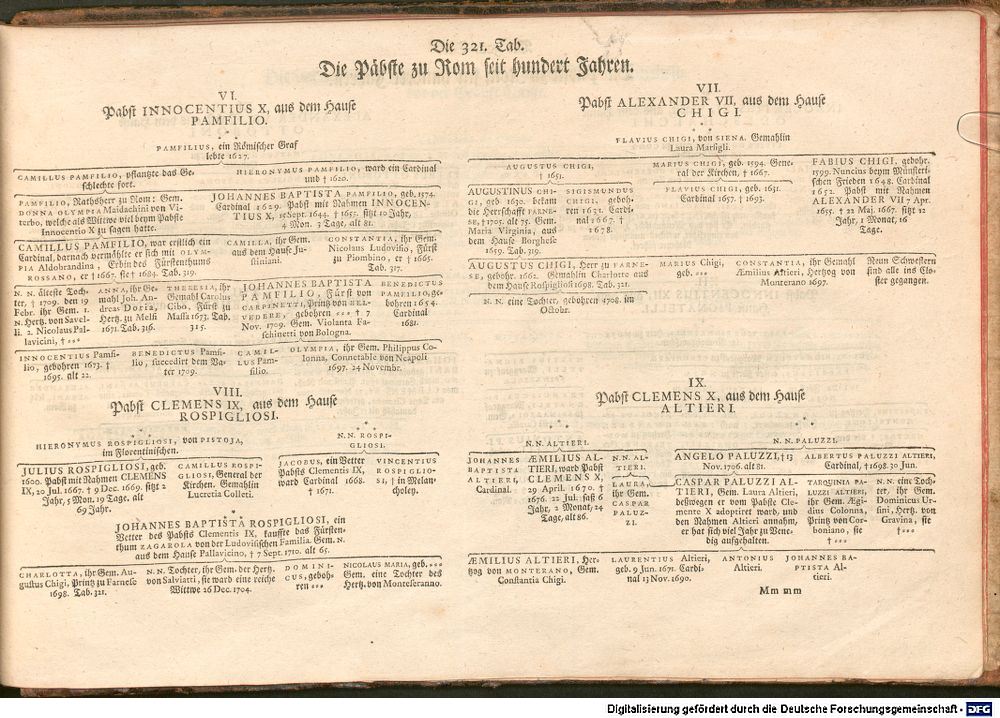 Die 321. Tab.
Die Päbste zu Rom seit hundert Jahren.
VI.
Pabst INNOCENTIUS X, aus dem Hause
PAMFILIO.
PAMFILIUS, ein Römischer Graf
lebte 1627.
CAMILLUS PAMFILIO, pflantzte das Ge-
schlechte fort.
HIERONYMUS PAMFILIO, ward ein Cardinal
und † 1620.
PAMFILIO, Rathsherr zu Rom: Gem.
DONNA OLYMPIA Maidachini von Vi-
terbo, welche als Wittwe viel beym Pabste
Innocentio X zu sagen hatte.
JOHANNES BAPTISTA PAMFILIO, geb. 1574.
Cardinal 1629. Pabst mit Nahmen INNOCEN-
TIUS X, 15 Sept. 1644. † 1655. sitzt 10 Jahr,
4 Mon. 3 Tage, alt 81.
CAMILLUS PAMFILIO, war erstlich ein
Cardinal, darnach vermählte er sich mit OLYM-
PIA Aldobrandina, Erbin des Fürstenthums
ROSSANO, er † 1665. sie † 1684. Tab. 319.
CAMILLA, ihr Gem.
aus dem Hause Ju-
stiniani.
CONSTANTIA, ihr Gem.
Nicolaus Ludovisio, Fürst
zu Piombino, er † 1665.
Tab. 317.
N. N. älteste Toch-
ter, † 1709. den 19
Febr. ihr Gem. 1.
N. Hertz. von Savel-
li. 2. Nicolaus Pal-
lavicini, †
ANNA, ihr Ge-
mahl Joh. An-
dreas Doria,
Hertz. zu Melfi
1671. Tab. 316.
THERESIA, ihr
Gemahl Carolus
Cibo, Fürst zu
Massa 1673. Tab.
315.
JOHANNES BAPTISTA
PAMFILIO, Fürst von
CARPINETTI, Printz von BEL-
VEDERE, gebohren † 7
Nov. 1709. Gem. Violanta Fa-
schinetti von Bologna.
BENEDICTUS
PAMFILIO, ge-
bohren 1654.
Cardinal
1681.
INNOCENTIUS Pamfi-
lio, gebohren 1673. †
1695. alt 22.
BENEDICTUS Pamfi-
lio, succedirt dem Va-
ter 1709.
CAMIL-
LUS Pam-
filio.
OLYMPIA, ihr Gem. Philippus Co-
lonna, Connetable von Neapoli
1697. 24 Novembr.
VII.
Pabst ALEXANDER VII, aus dem Hause
CHIGI.
FLAVIUS CHIGI, von SIENA. Gemahlin
Laura Marsigli.
AUGUSTUS CHIGI,
† 1651.
MARIUS CHIGI, geb. 1594. Gene-
ral der Kirchen, † 1667.
FABIUS CHIGI, gebohr.
1599. Nuncius beym Münsteri-
schen Frieden 1648. Cardinal
1652. Pabst mit Nahmen
ALEXANDER VII 7 Apr.
1655. † 22 Maj. 1667. sitzt 12
Jahr, 1 Monat, 16
Tage.
AUGUSTINUS CHI-
GI, geb. 1630. bekam
die Herrschafft FARNE-
SE, † 1705. alt 75. Gem.
Maria Virginia, aus
dem Hause Borghese
1659. Tab. 319.
SIGISMUNDUS
CHIGI, geboh-
ren 1631. Cardi-
nal 1667. †
1678.
FLAVIUS CHIGI, geb. 1631.
Cardinal 1657. † 1693.
AUGUSTUS CHIGI, Herr zu FARNE-
SE, gebohr. 1662. Gemahlin Charlotte aus
dem Hause Rospigliosi 1698. Tab. 321.
MARIUS Chigi,
geb.
CONSTANTIA, ihr Gemahl
Æmilius Altieri, Hertzog von
Monterano 1697.
Neun Schwestern
sind alle ins Clo-
ster gegangen.
N. N. eine Tochter, gebohren 1708. im
Octobr.
VIII.
Pabst CLEMENS IX, aus dem Hause
ROSPIGLIOSI.
HIERONYMUS ROSPIGLIOSI, von PISTOJA,
im Florentinischen.
N. N. ROSPI-
GLIOSI.
JULIUS ROSPIGLIOSI, geb.
1600. Pabst mit Nahmen CLEMENS
IX, 20 Jul. 1667. † 9 Dec. 1669. sitzt 2
Jahr, 5 Mon. 19 Tage, alt
69 Jahr.
CAMILLUS ROSPI-
GLIOSI, General der
Kirchen. Gemahlin
Lucretia Colleti.
JACOBUS, ein Vetter
Pabsts Clementis IX,
ward Cardinal 1668.
† 1671.
VINCENTIUS
ROSPIGLIO-
SI, † in Melan-
choley.
JOHANNES BAPTISTA ROSPIGLIOSI, ein
Vetter des Pabsts Clementis IX, kauffte das Fürsten-
thum ZAGAROLA von der Ludovisischen Familia. Gem. N.
aus dem Hause Pallavicino, † 7 Sept. 1710. alt 65.
CHARLOTTA, ihr Gem. Au-
gustus Chigi, Printz zu Farnese
1698. Tab. 321.
N. N. Tochter, ihr Gem. der Hertz.
von Salviatti, sie ward eine reiche
Wittwe 26 Dec. 1704.
DOMINI-
CUS, geboh-
ren
NICOLAUS MARIA, geb.
Gem. eine Tochter des
Hertz. von Monteseranno.
IX.
Pabst CLEMENS X, aus dem Hause
ALTIERI.
N. N. ALTIERI.
N. N. PALUZZI.
JOHANNES
BAPTISTA
ALTIERI,
Cardinal.
ÆMILIUS AL-
TIERI, ward Pabst
CLEMENS X,
29 April. 1670. †
1676. 22 Jul. saß 6
Jahr, 2 Monat, 24
Tage, alt 86.
N. N. AL-
TIERI.
LAURA,
ihr Gem.
CASPAR
PALUZ-
ZI.
ANGELO PALUZZI, † 13
Nov. 1706. alt 81.
ALBERTUS PALUZZI ALTIERI,
Cardinal, † 1698. 30 Jun.
CASPAR PALUZZI AL-
TIERI, Gem. Laura Altieri,
deswegen er vom Pabste Cle-
mente X adoptiret ward, und
den Nahmen Altieri annahm,
er hat sich viel Jahr zu Vene-
dig aufgehalten.
TARQUINIA PA-
LUZZI ALTIERI,
ihr Gem. Ægi-
dius Colonna,
Printz von Cor-
boniano, sie
†
N. N. eine Toch-
ter, ihr Gem.
Dominicus Ur-
sini, Hertz. von
Gravina, sie
†
ÆMILIUS ALTIERI, Her-
tzog von MONTERANO, Gem.
Constantia Chigi.
LAURENTIUS Altieri,
geb. 9 Jun. 1671. Cardi-
nal 13 Nov. 1690.
ANTONIUS
Altieri.
JOHANNES BA-
PTISTA Al-
tieri.
Mm mm
Digitalisierung gefördert durch die Deutsche Forschungsgemeinschaft - DFG